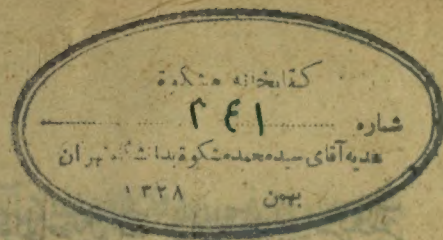 کتابخانه مشکوة
شماره ۲۴۱
هدیه آقای سید محمد مشکوة بدانشگاه تهران
بهمن ۱۳۲۸